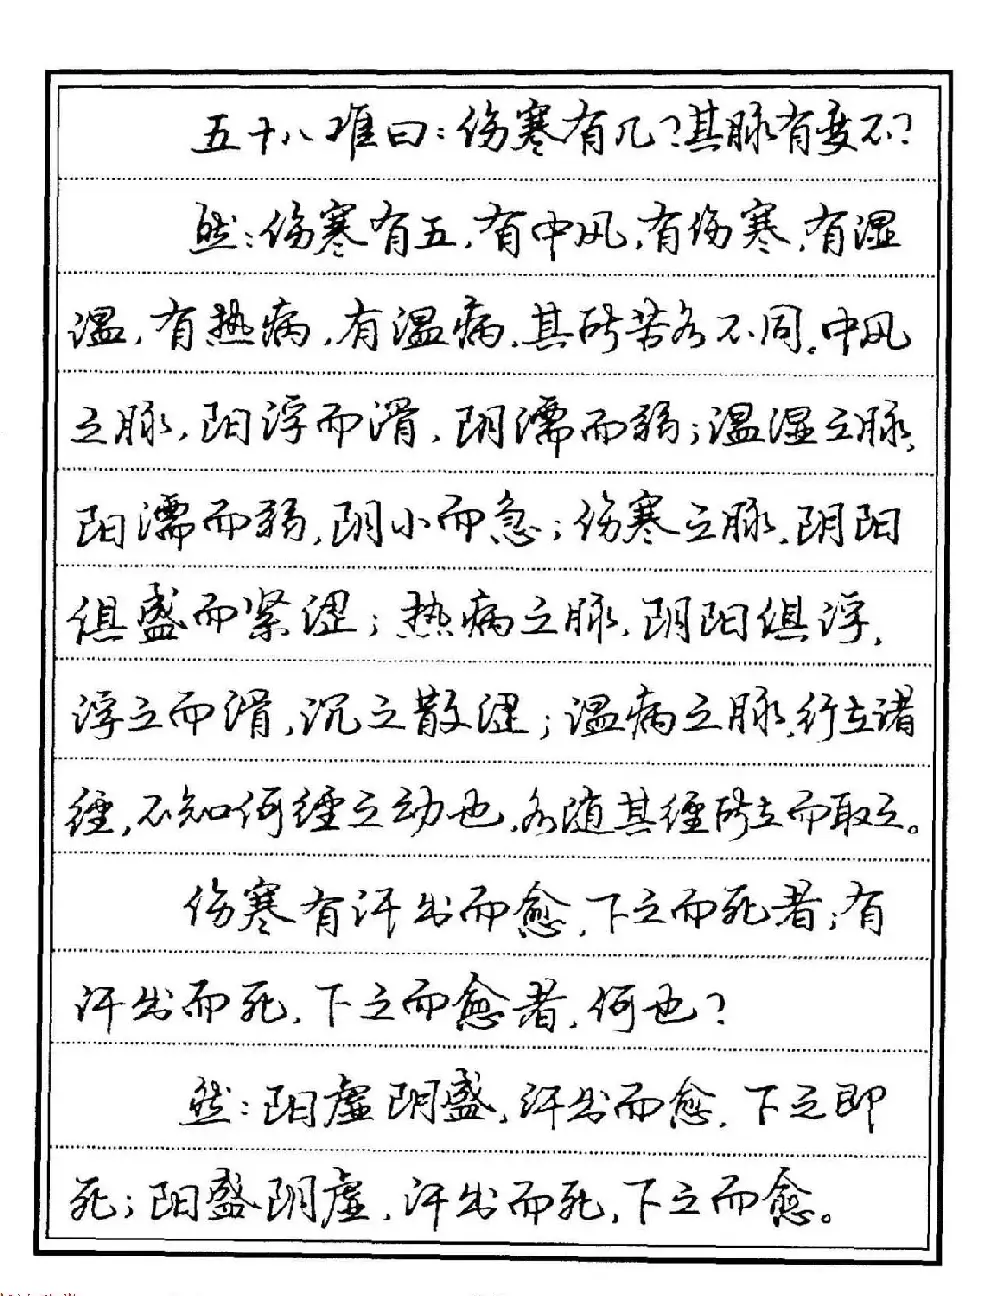 五十八难曰：伤寒有几？其脉有变不？
然：伤寒有五，有中风，有伤寒，有湿
温，有热病，有温病，其所苦各不同。中风
之脉，阳浮而滑，阴濡而弱；温湿之脉，
阳濡而弱，阴小而急；伤寒之脉，阴阳
俱盛而紧涩；热病之脉，阴阳俱浮，
浮之而滑，沉之散涩；温病之脉，行在诸
经，不知何经之动也，各随其经所在而取之。
伤寒有汗出而愈，下之而死者；有
汗出而死，下之而愈者，何也？
然：阳虚阴盛，汗出而愈，下之即
死；阳盛阴虚，汗出而死，下之而愈。